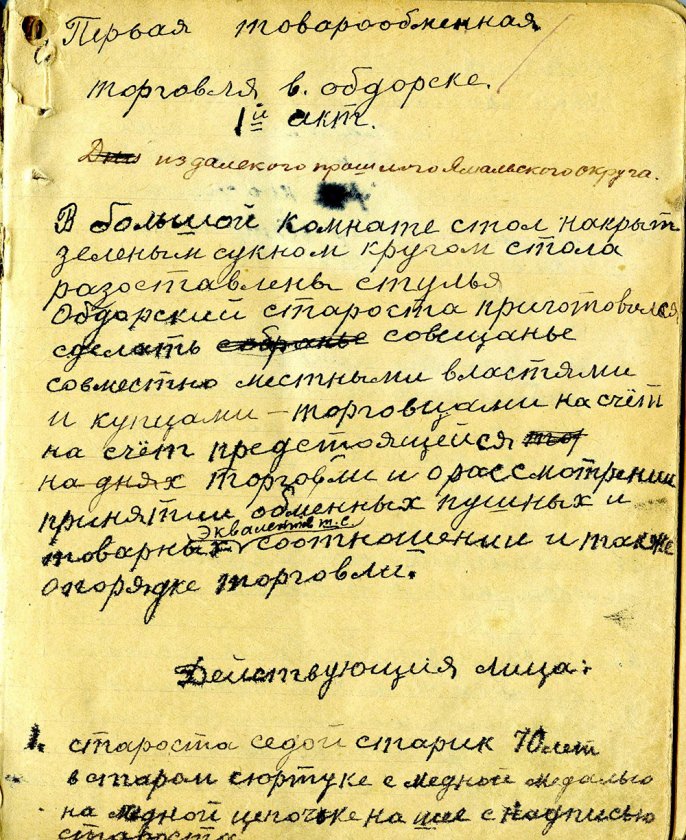 Первая товарообменная
торговля в. обдорске.
1й акт.
Дни из далекого прошлого Ямальского округа.
В большой комнате стол накрыт
зеленым сукном кругом стола
разоставлены стулья
Обдорский староста приготовился
сделать собранье совещанье
совместно местными властями
и купцами – торговцами на счёт
на счёт предстоящейся тор
на днях торговли и о рассмотрении
принятии обменных пушных и
эквалентов т.е
товарных соотношении и также
о порядке торговли.
Действующия лица:
1. староста седой старик 70 лет
в старом сюртуке с медной медалью
на медной цепочке на шее с надписью
староста